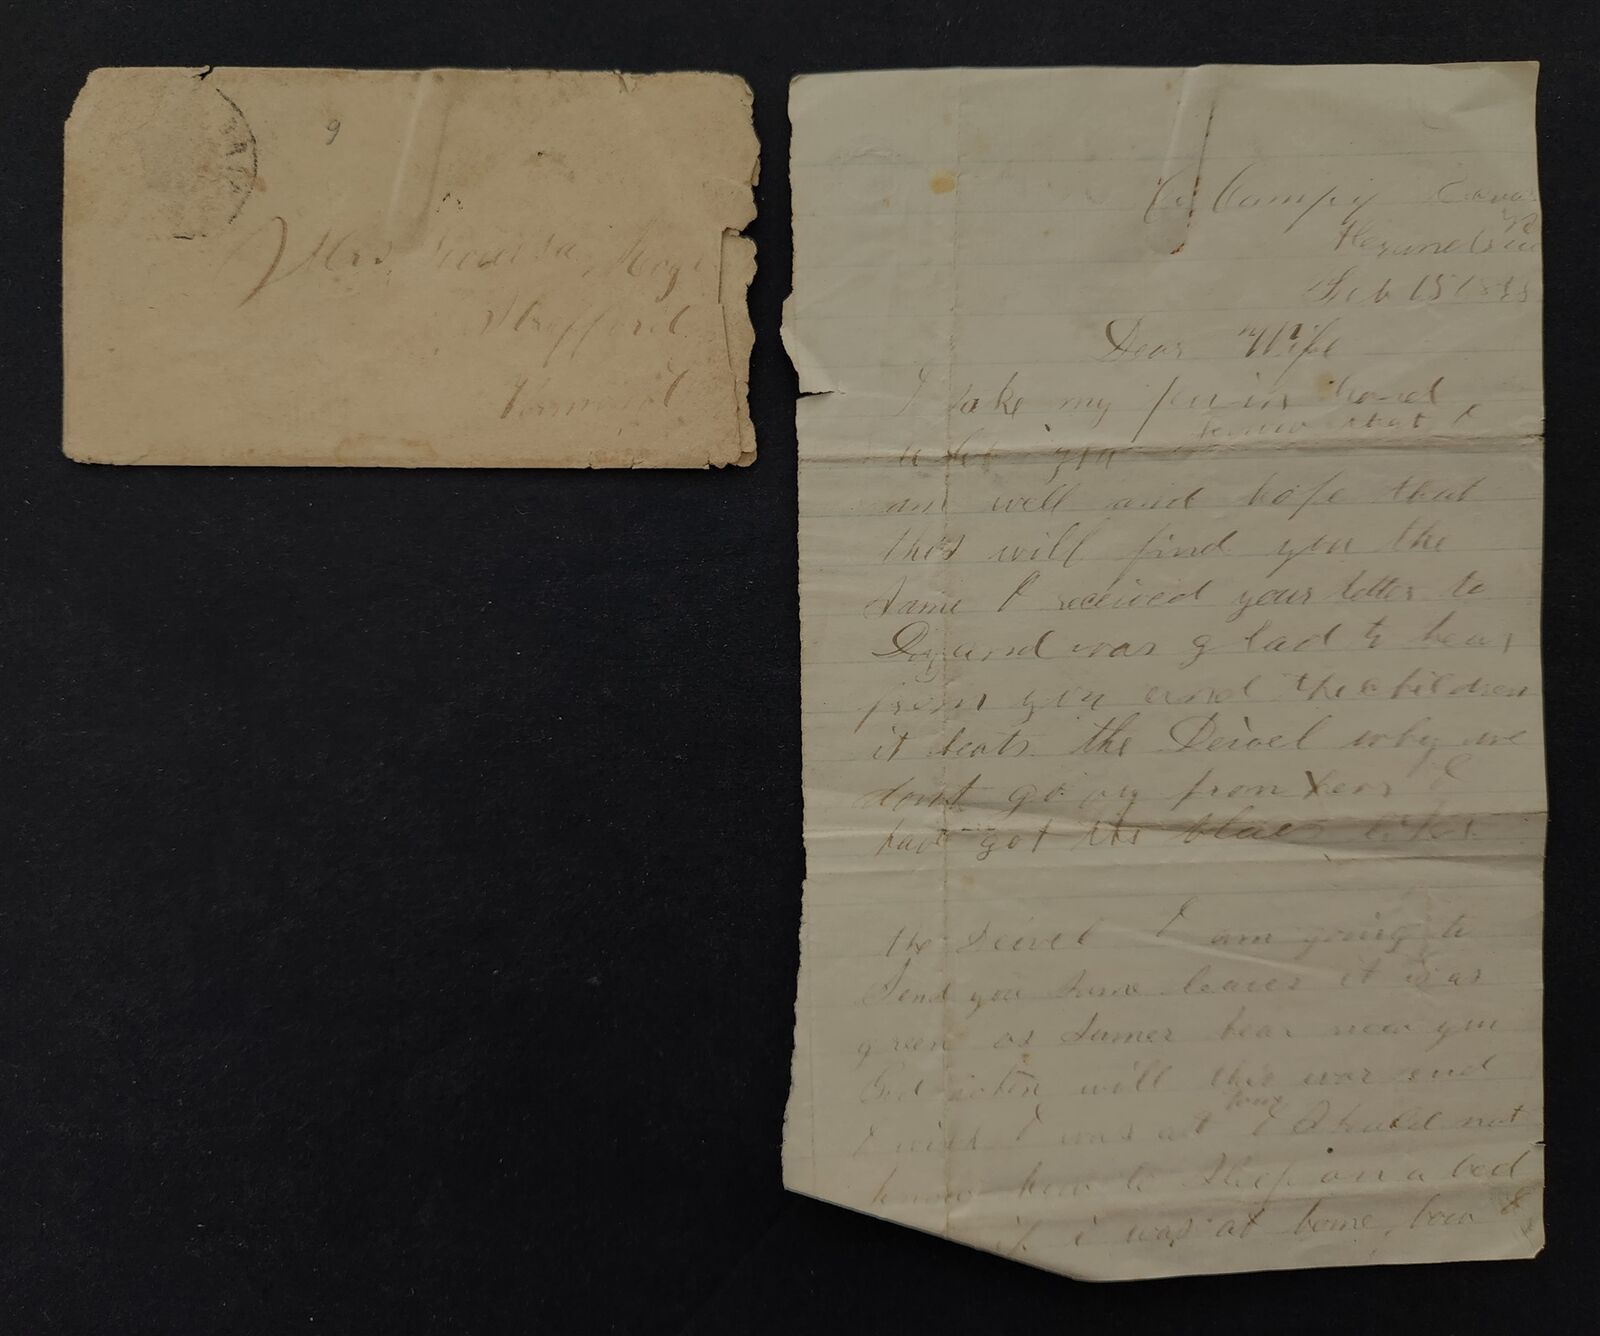 9
Mrs
Strafford
Vermont
Co Campy
Feb 15 18
Dear Wife
I take my pen in hand
to let you know that I
am well and hope that
this will find you the
same I received your letter to
Day and was glad to hear
from you and the children
it beats the Deivel why we
dont go from hear I
have got the blues like
the Deivel I am going to
Send you some leaves it is as
green as Sumer hear now you
will this war end
I wish I was at home I Should not
know how to Sleep on a bed
if i was at home how I